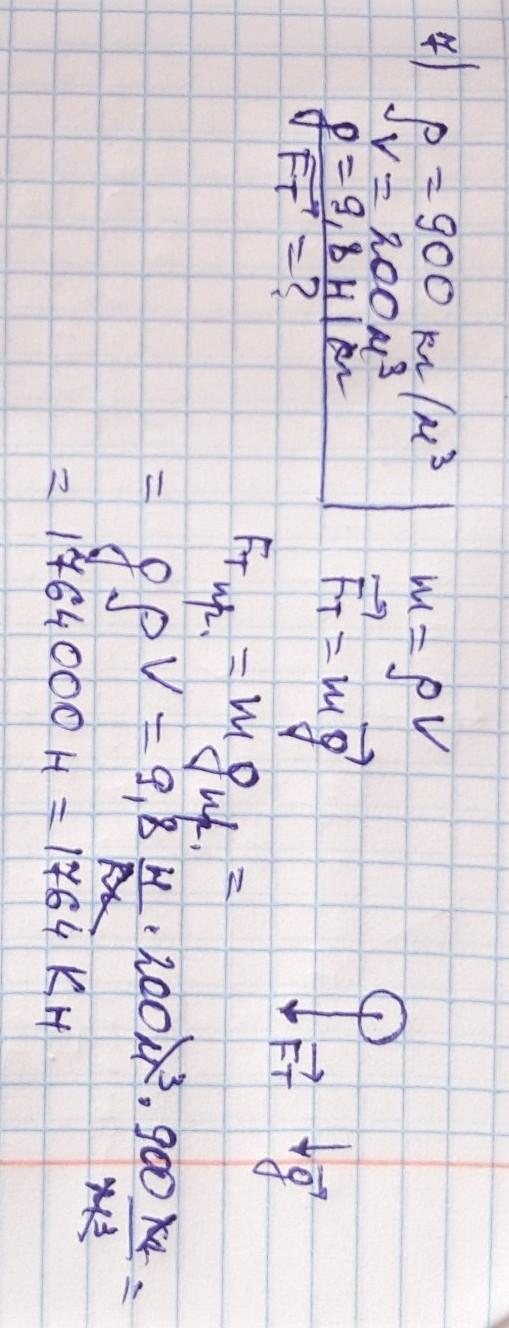 7)
ρ = 900 кг/м³
V = 200 м³
g = 9,8 Н/кг
F⃗т = ?
m = ρV
F⃗т = mg⃗
Fт пр. = mg пр. =
= gρV = 9,8 Н/кг · 200 м³ · 900 кг/м³ =
= 1764000 Н = 1764 КН
F⃗т
g⃗